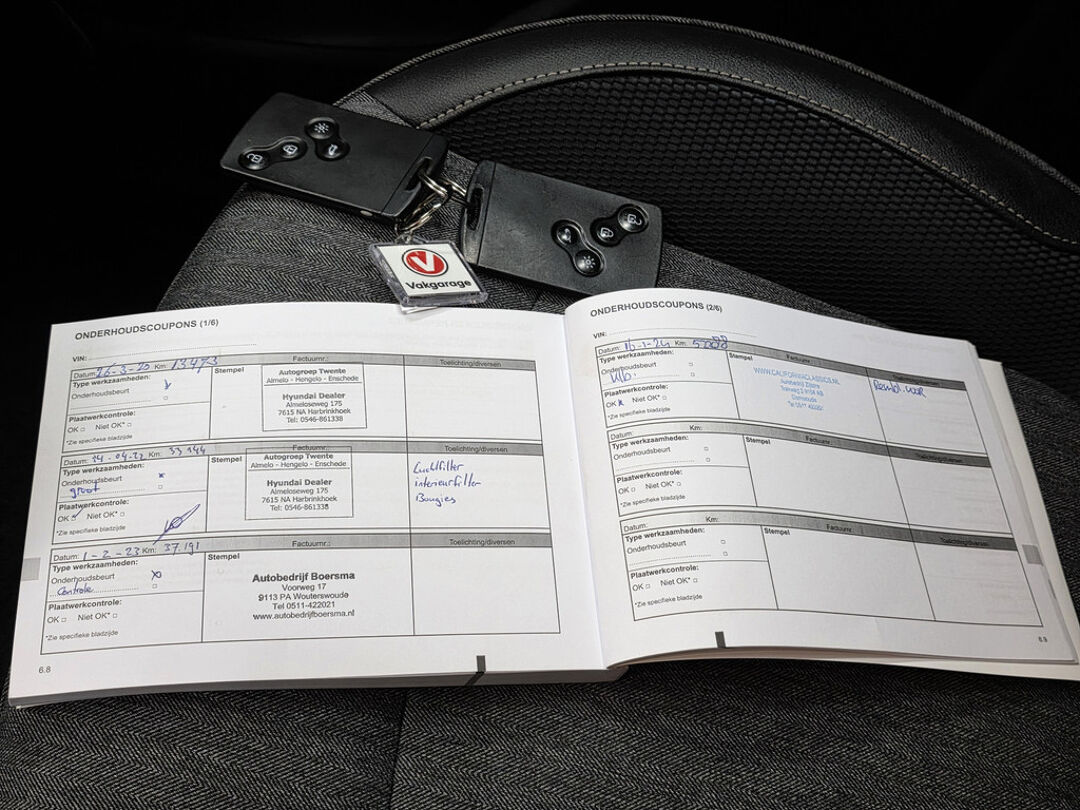 Vakgarage
ONDERHOUDSCOUPONS (1/6)
VIN:
Datum: 26-3-20 Km: 13473 Factuurnr.:
Type werkzaamheden:
Onderhoudsbeurt
Stempel
Toelichting/diversen
Autogroep Twente
Almelo - Hengelo - Enschede
Hyundai Dealer
Almeloseweg 175
7615 NA Harbrinkhoek
Tel: 0546-861338
Plaatwerkcontrole:
OK □ Niet OK* □
*Zie specifieke bladzijde
Datum: 14-04-22 Km: 33144 Factuurnr.:
Type werkzaamheden:
Onderhoudsbeurt
groot
Stempel
Toelichting/diversen
Autogroep Twente
Almelo - Hengelo - Enschede
Hyundai Dealer
Almeloseweg 175
7615 NA Harbrinkhoek
Tel: 0546-861338
Luchtfilter
interieurfilter
Bougies
Plaatwerkcontrole:
OK Niet OK* □
*Zie specifieke bladzijde
Datum: 1-2-23 Km: 37.191 Factuurnr.:
Type werkzaamheden:
Onderhoudsbeurt
Controle
Stempel
Toelichting/diversen
Autobedrijf Boersma
Voorweg 17
9113 PA Wouterswoude
Tel 0511-422021
www.autobedrijfboersma.nl
Plaatwerkcontrole:
OK □ Niet OK* □
*Zie specifieke bladzijde
6.8
ONDERHOUDSCOUPONS (2/6)
VIN:
Datum: 16-1-24 Km: Factuurnr.
Type werkzaamheden:
Onderhoudsbeurt
Stempel
Toelichting/diversen
WWW.CALIFORNIACLASSICS.NL
Autobedrijf
voor
Plaatwerkcontrole:
OK Niet OK* □
*Zie specifieke bladzijde
Datum: Km: Factuurnr.
Type werkzaamheden:
Onderhoudsbeurt
Stempel
Toelichting/diversen
Plaatwerkcontrole:
OK □ Niet OK* □
*Zie specifieke bladzijde
Datum: Km: Factuurnr.
Type werkzaamheden:
Onderhoudsbeurt
Stempel
Toelichting/diversen
Plaatwerkcontrole:
OK □ Niet OK* □
*Zie specifieke bladzijde
6.9